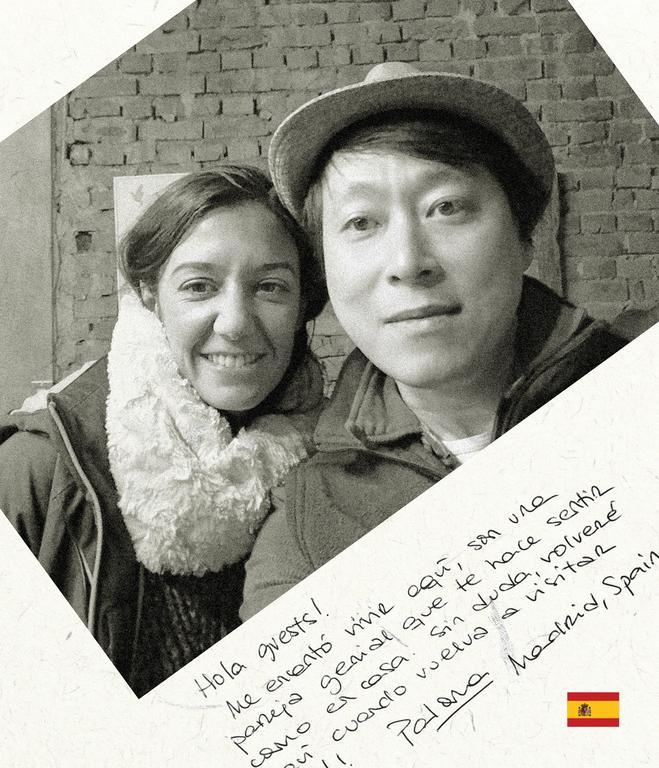 Hola guests!
Me encantó vivir aquí, son una
pareja genial que te hace sentir
como en casa. Sin duda, volveré
aquí cuando vuelva a visitar
!!
Paloma Madrid, Spain